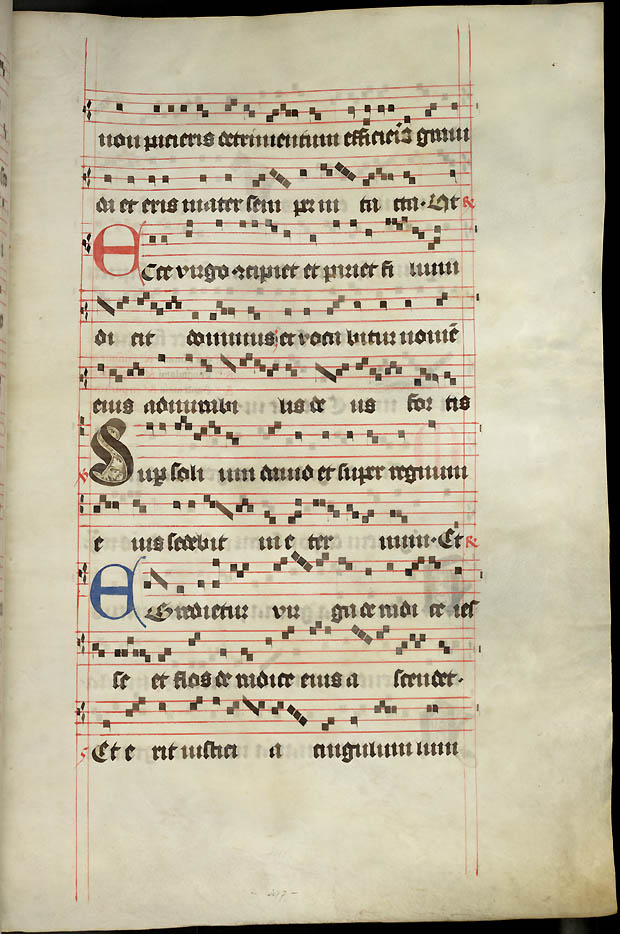 non pacieris detrimentum efficieris gravi
da et eris mater sem per in ta cta. Ut ℟
Ecce virgo concipiet et pariet fi lium
di cit dominus et voca bitur nomē
eius admirabi lis de us for tis
Sup̄ soli um david et super regnum
e ius sedebit in e ter num. Et ℟
Egredietur vir ga de radi ce ies
se et flos de radice eius a scendet.
Et e rit iustici a cingulum lum